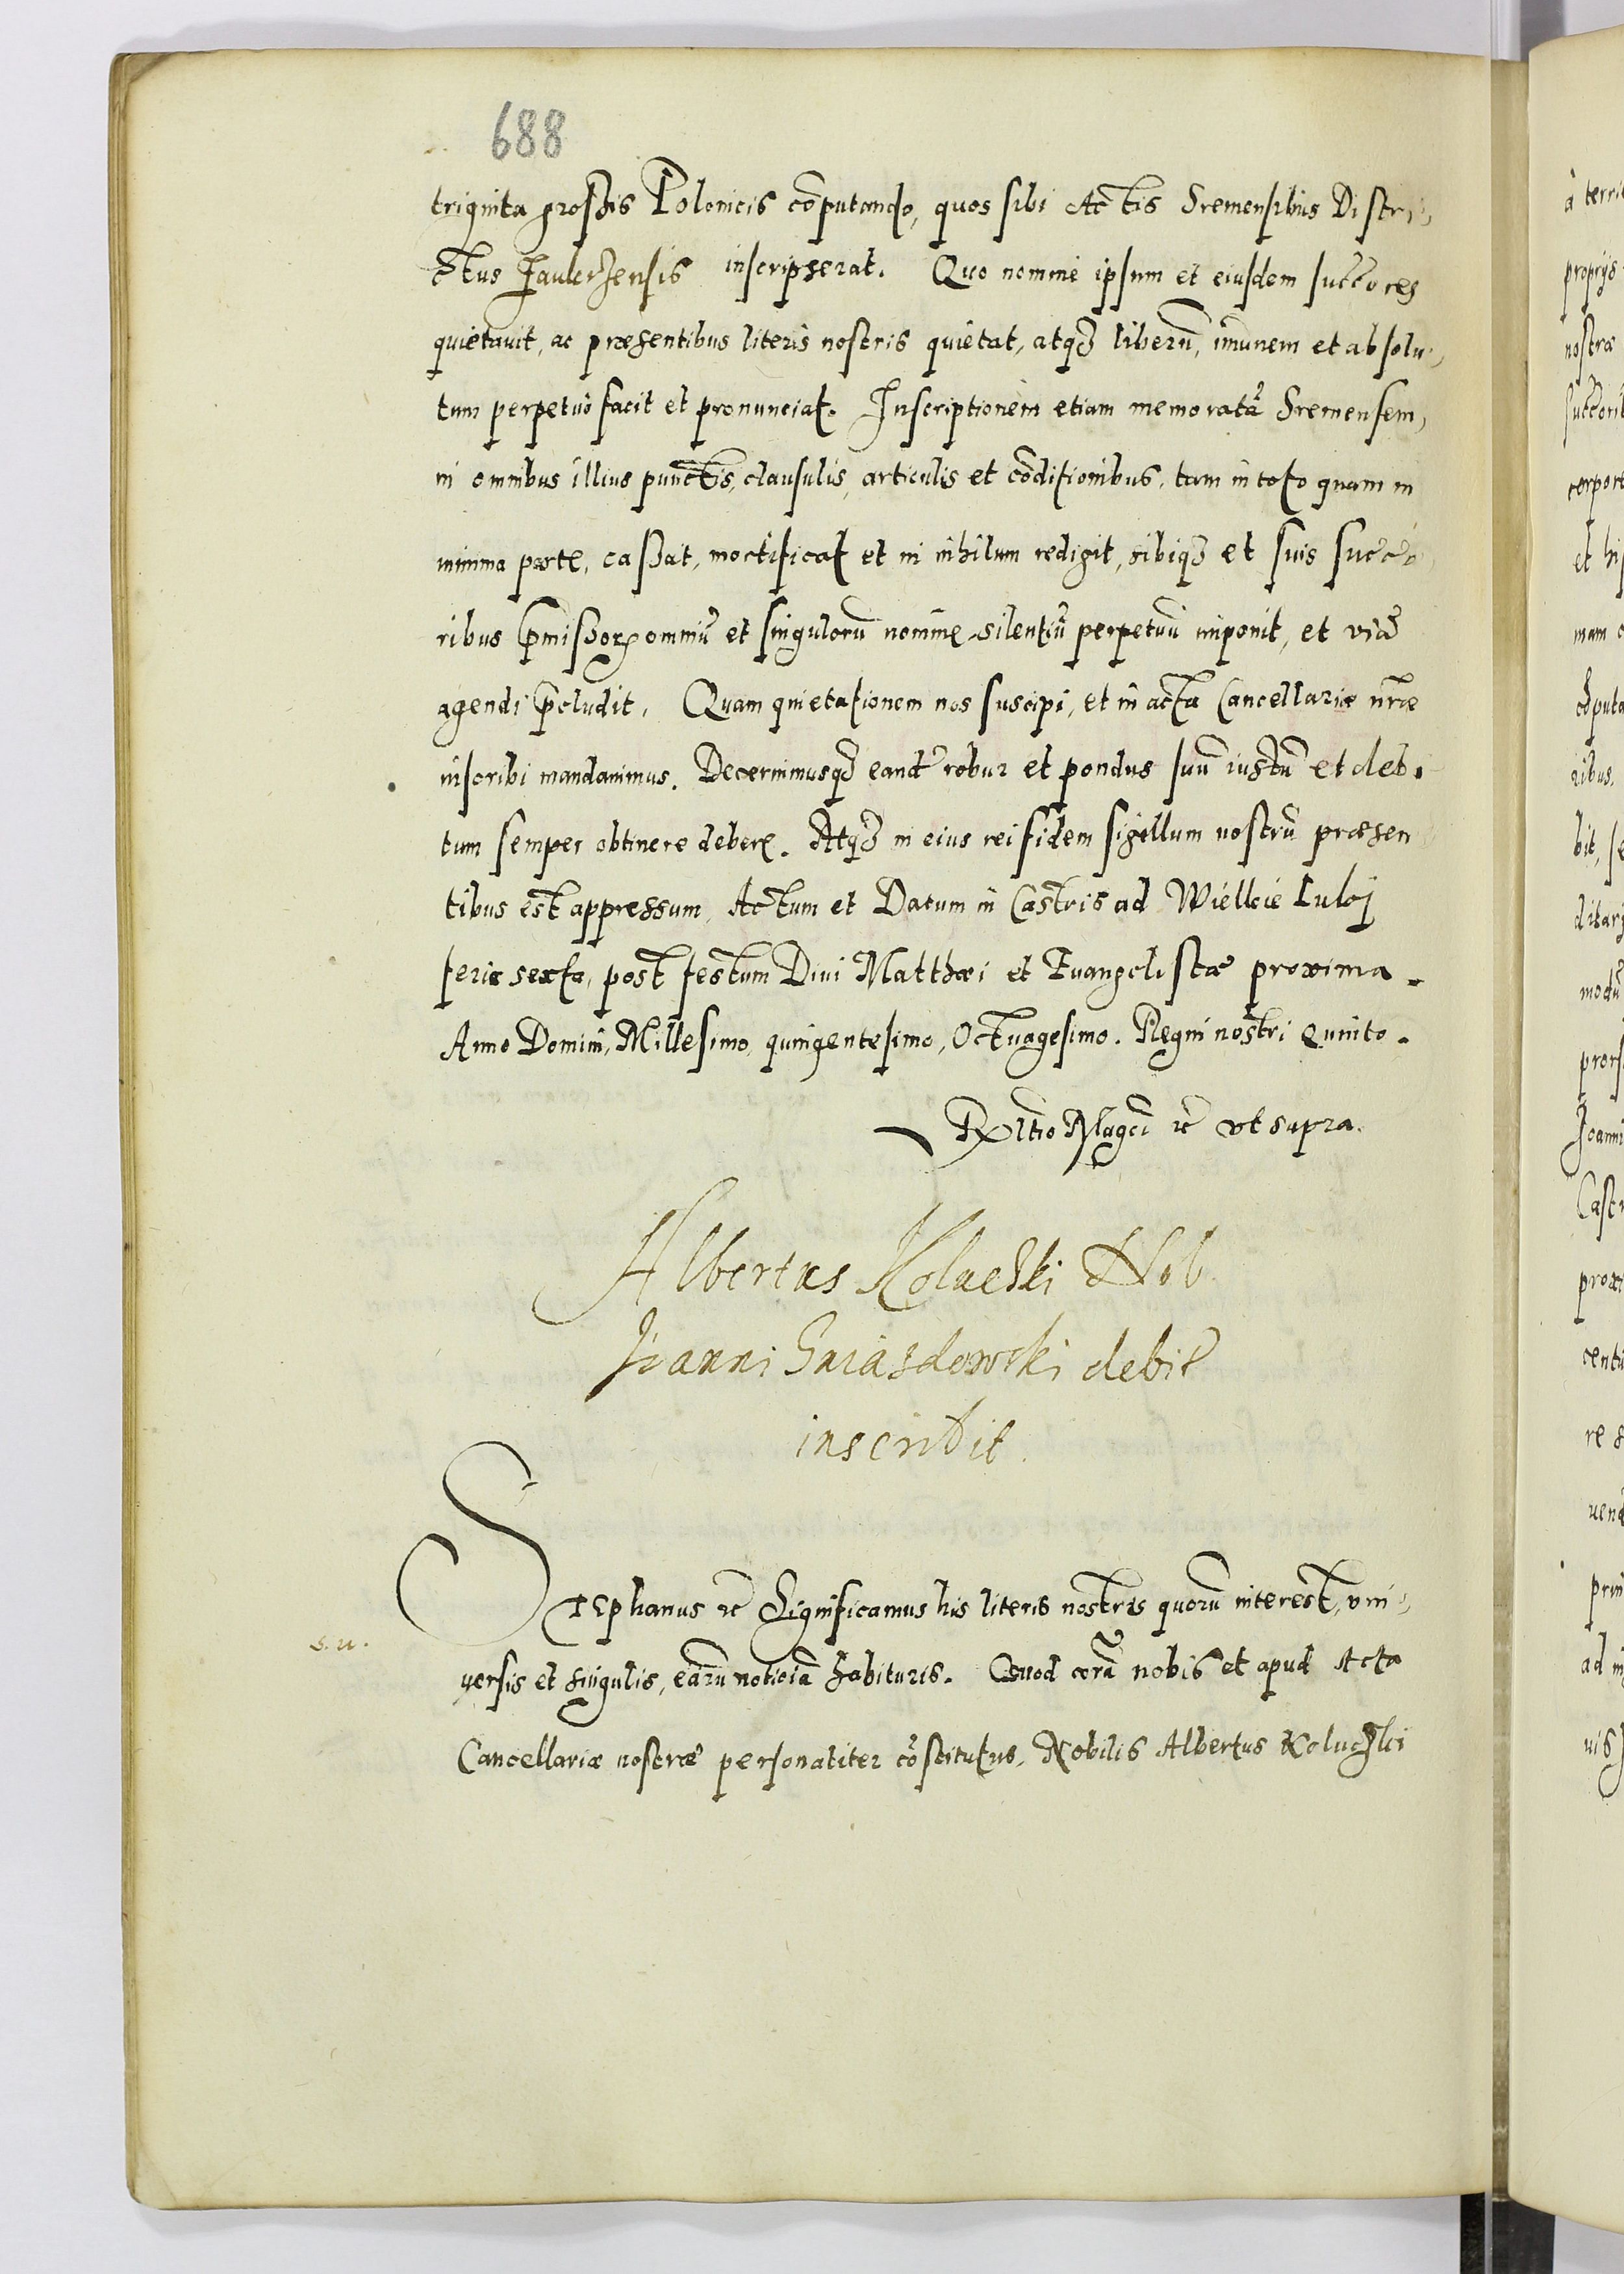 688
trigninta grossis Polonicis cōputando, quos sibi Actis Sremensibus Distri,
ctus inscripserat. Quo nomine ipsum et eiusdem succores
quietauit, ac præsentibus literis nostris quietat, atq3 liberū, imunem et absolu,
tum perpetuò facit et pronunciat. Inscriptionem etiam memoratā Sremensem,
in omnibus illius punctis, clausulis, articulis et cōditionibus, tam in toto quam in
minima parte, cassat, mortificat et in nihilum redigit, sibiq3 et suis succo
ribus p̄missorꝝ omniū et singulorū nomine silentiū perpetuū imponit, et viā
agendi p̄cludit. Quam quietationem nos suscipi, et in acta Cancellariæ nr̄æ
inscribi mandauimus. Decernimusq3 eand̄ robur et pondus suū iustū et debi
tum semper obtinere debere. Atq3 in eius rei fidem sigillum nostrū præsen
tibus est appressum. Actum et Datum in Castris ad Wielkie Luki
feria sexta, post festum Diui Matthæi et Euangelistæ proxima.
Anno Domini, Millesimo, quingentesimo, Octuagesimo. Regni nostri Quinto.
Rltio Magci ꝛc̄ vt supra.
Albertus Koluczki Nob.
Joanni Gniasdowski debit̄
inscribit.
STEphanus ꝛc̄ Significamus his literis nostris quorū interest, vni,
s. u.
uersis et singulis, earū noticiā habituris. Quod corā nobis et apud Acta
Cancellariæ nostræ personaliter cōstitutus, Nobilis Albertus Koluczki